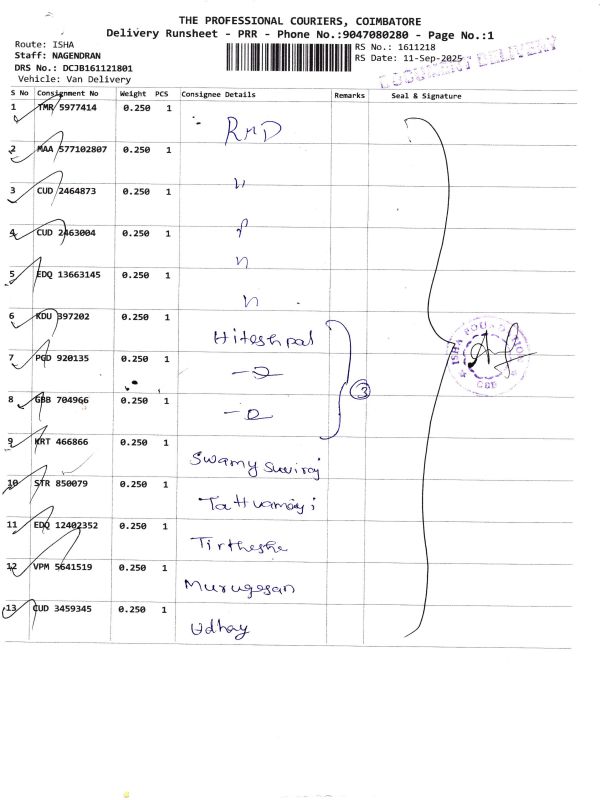 THE PROFESSIONAL COURIERS, COIMBATORE
Delivery Runsheet - PRR - Phone No.:9047080280 - Page No.:1
Route: ISHA
Staff: NAGENDRAN
DRS No.: DCJB161121801
Vehicle: Van Delivery
RS No.: 1611218
RS Date: 11-Sep-2025
DOCUMENT DELIVERY
S No Consignment No Weight PCS Consignee Details Remarks Seal & Signature
1 TMR 5977414 0.250 1 RMD
2 MAA 577102807 0.250 1 "
3 CUD 2464873 0.250 1
4 CUD 2463004 0.250 1 "
5 EDQ 13663145 0.250 1 "
6 KDU 397202 0.250 1 Hiteshpal
7 PGD 920135 0.250 1
8 GBB 704966 0.250 1
3
9 KRT 466866 0.250 1 Swamy
10 STR 850079 0.250 1
11 EDQ 12402352 0.250 1
12 VPM 5641519 0.250 1 Murugesan
13 CUD 3459345 0.250 1 Udhay
ISHA FOUNDATION
CBB